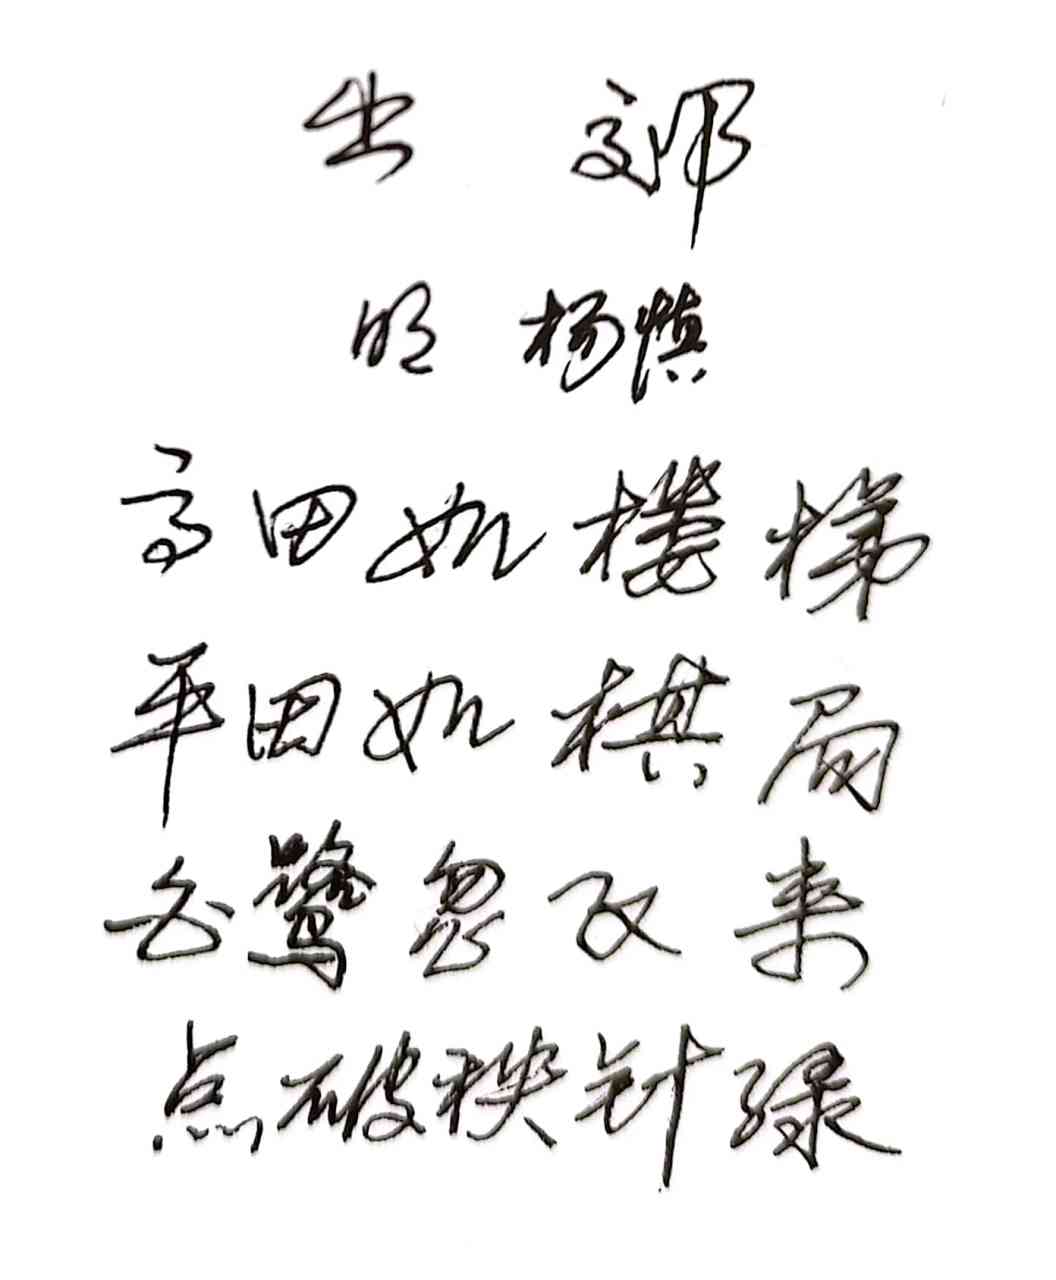 出 郊
明 杨慎
高田如楼梯
平田如棋局
白鹭忽飞来
点破秧针绿